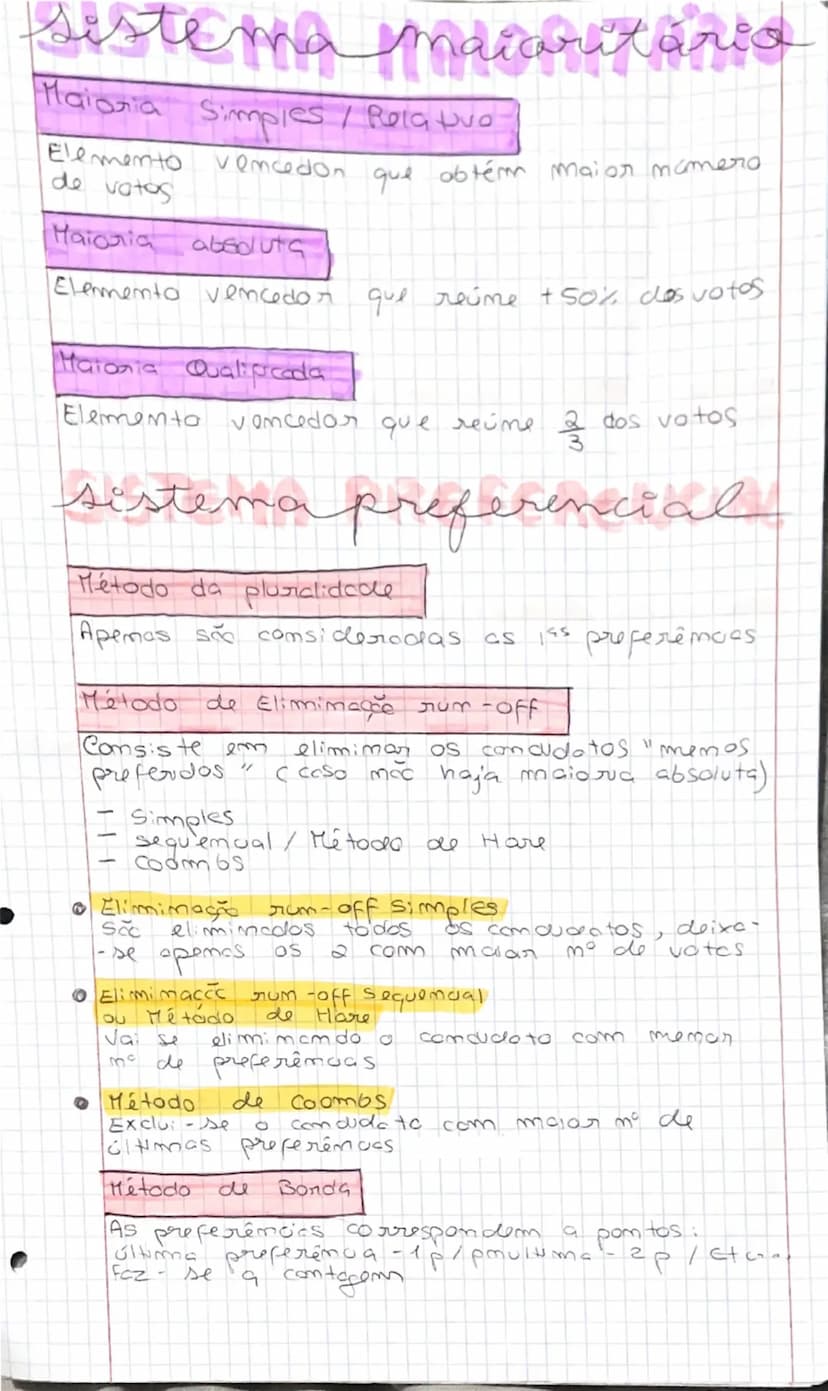 sistema maioritário
Maioria Simples / Relativo
Elemento vencedor que obtém maior número
de votos
Maioria absoluta
Elemento vencedor que reúne +50% dos votos
Maioria Qualificada
Elemento vencedor que reúne 2/3 dos votos
sistema preferencial
Método da pluralidade
Apenas são consideradas as 1ªs preferências
Método de Eliminação run-off
Consiste em eliminar os candidatos "menos
preferidos" (caso não haja maioria absoluta)
- Simples
- sequencial / Método de Hare
- Coombs
Eliminação run-off simples
São eliminados todos os candidatos, deixa-
-se apenas os 2 com maior nº de votos
Eliminação run-off sequencial
ou Método de Hare
Vai se eliminando o candidato com menor
nº de preferências
Método de Coombs
Exclui-se o candidato com maior nº de
últimas preferências
Método de Borda
As preferências correspondem a pontos:
última preferência - 1p / penúltima - 2p / Etc...
Faz-se a contagem